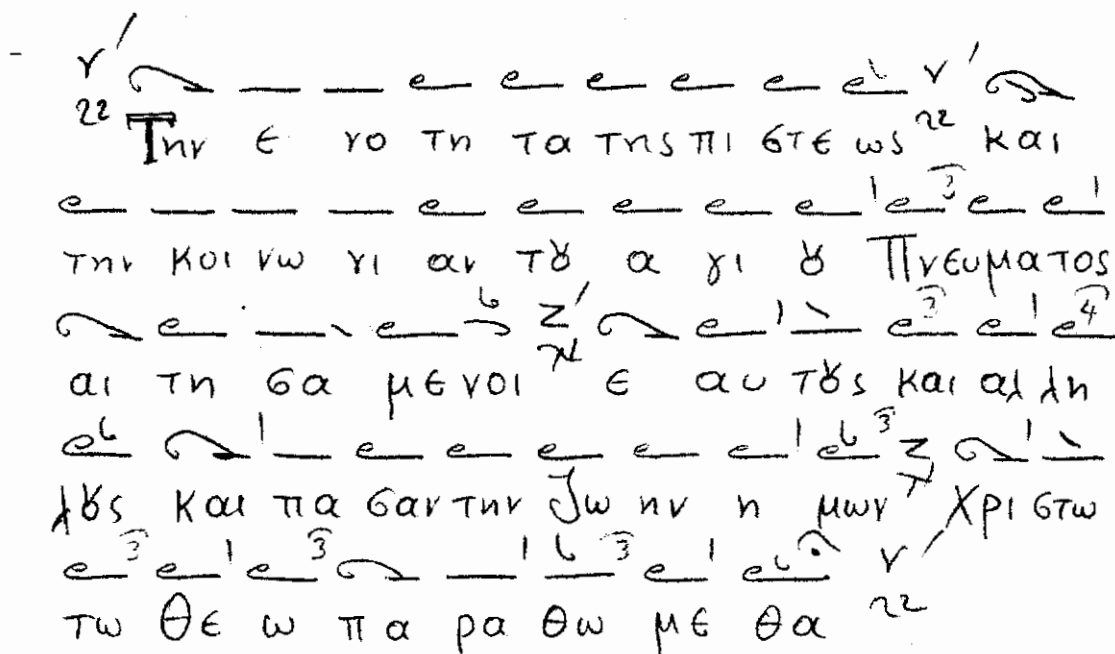 Την ε νο τη τα της πι στε ως και
την κοι νω νι αν τȣ α γι ȣ Πνευματος
αι τη σα με νοι ε αυ τȣς και αλ λη
λȣς και πα σαν την ζω ην η μων Χρι στω
τω Θε ω πα ρα θω με θα